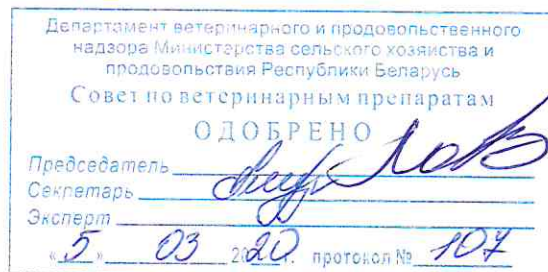 Департамент ветеринарного и продовольственного
надзора Министерства сельского хозяйства и
продовольствия Республики Беларусь
Совет по ветеринарным препаратам
ОДОБРЕНО
Председатель
Секретарь
Эксперт
«5» 03 2020г. протокол № 107